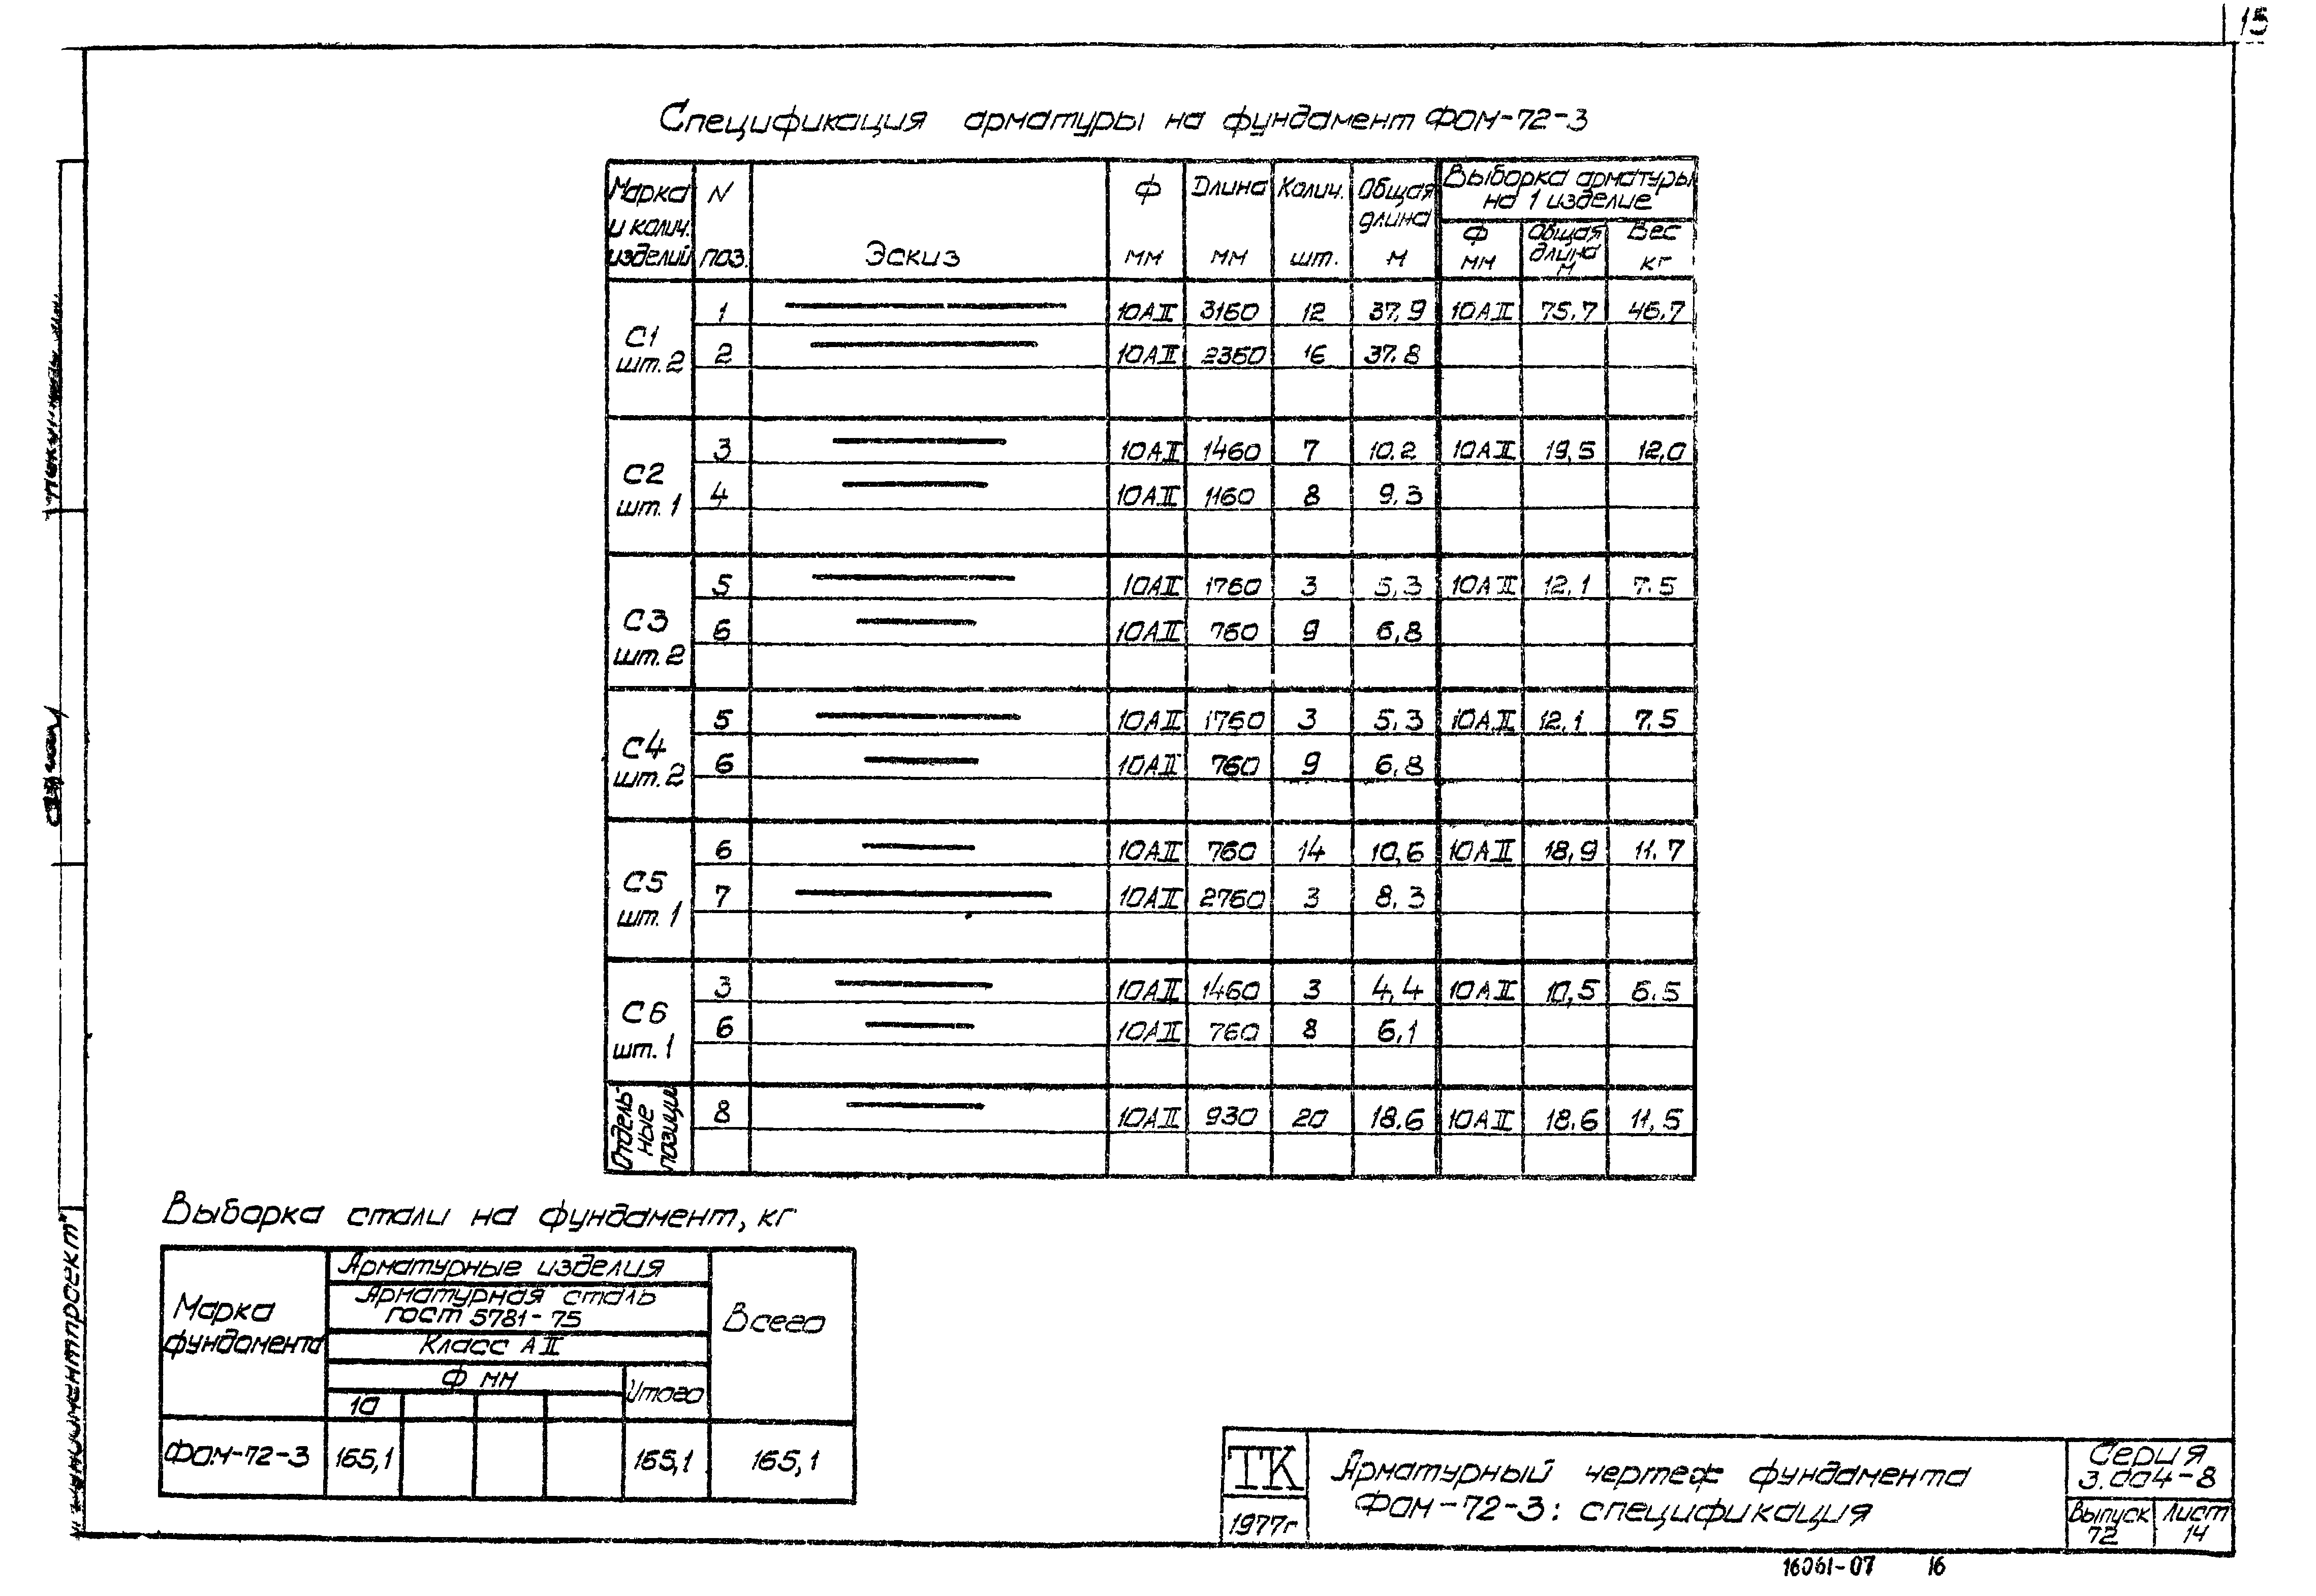 15
Спецификация арматуры на фундамент ФОМ-72-3
Марка и колич. изделий | N поз. | Эскиз | Ф мм | Длина мм | Колич. шт. | Общая длина м | Выборка арматуры на 1 изделие
Ф мм | Общая длина м | Вес кг
С1 шт.2 | 1 | 10АII | 3160 | 12 | 37,9 | 10АII | 75,7 | 46,7
2 | 10АII | 2360 | 16 | 37.8
С2 шт.1 | 3 | 10АII | 1460 | 7 | 10.2 | 10АII | 19,5 | 12,0
4 | 10АII | 1160 | 8 | 9.3
С3 шт.2 | 5 | 10АII | 1760 | 3 | 5,3 | 10АII | 12,1 | 7.5
6 | 10АII | 760 | 9 | 6,8
С4 шт.2 | 5 | 10АII | 1760 | 3 | 5.3 | 10АII | 12,1 | 7.5
6 | 10АII | 760 | 9 | 6.8
С5 шт.1 | 6 | 10АII | 760 | 14 | 10,6 | 10АII | 18,9 | 11.7
7 | 10АII | 2760 | 3 | 8.3
С6 шт.1 | 3 | 10АII | 1460 | 3 | 4,4 | 10АII | 10,5 | 6.5
6 | 10АII | 760 | 8 | 6,1
Отдельные позиции | 8 | 10АII | 930 | 20 | 18.6 | 10АII | 18.6 | 11,5
Выборка стали на фундамент, кг
Марка фундамента | Арматурные изделия | Всего
Арматурная сталь
гост 5781-75
Класс АII
Ф мм | Итого
10
ФОМ-72-3 | 165,1 | 165,1 | 165,1
ТК
1977г
Арматурный чертеж фундамента
ФОМ-72-3: спецификация
Серия
3.004-8
Выпуск
72
Лист
14
16061-07 16